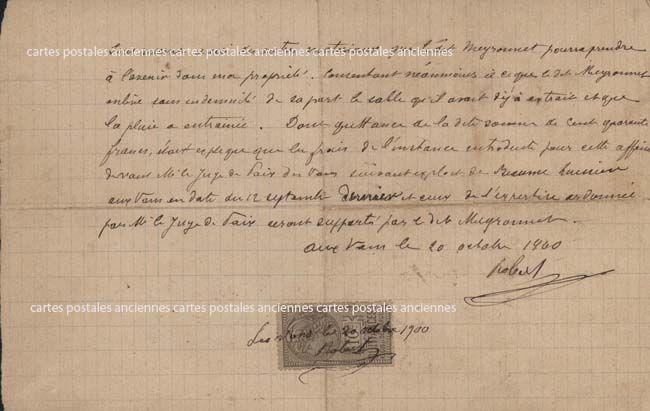 cartes postales anciennes cartes postales anciennes cartes postales anciennes
que le dit Meyronnet pourra prendre
à l'avenir dans ma propriété. Consentant néanmoins à ce que le dit Meyronnet
enlève sans indemnité de sa part le sable qu'il avait déjà extrait et que
la pluie a entrainée. Dont quittance de la dite somme de Cent quarante
francs, étant expliqué que les frais de l'instance introduite pour cette affaire
devant Mr le Juge de Paix des Vans suivant exploit de huissier
aux Vans en date du 12 septembre dernier et ceux de l'expertise ordonnée
par Mr le Juge de Paix seront supportés par le dit Meyronnet.
aux Vans le 20 octobre 1900
Robert
cartes postales anciennes cartes postales anciennes cartes postales anciennes
Les Vans le 20 octobre 1900
Robert